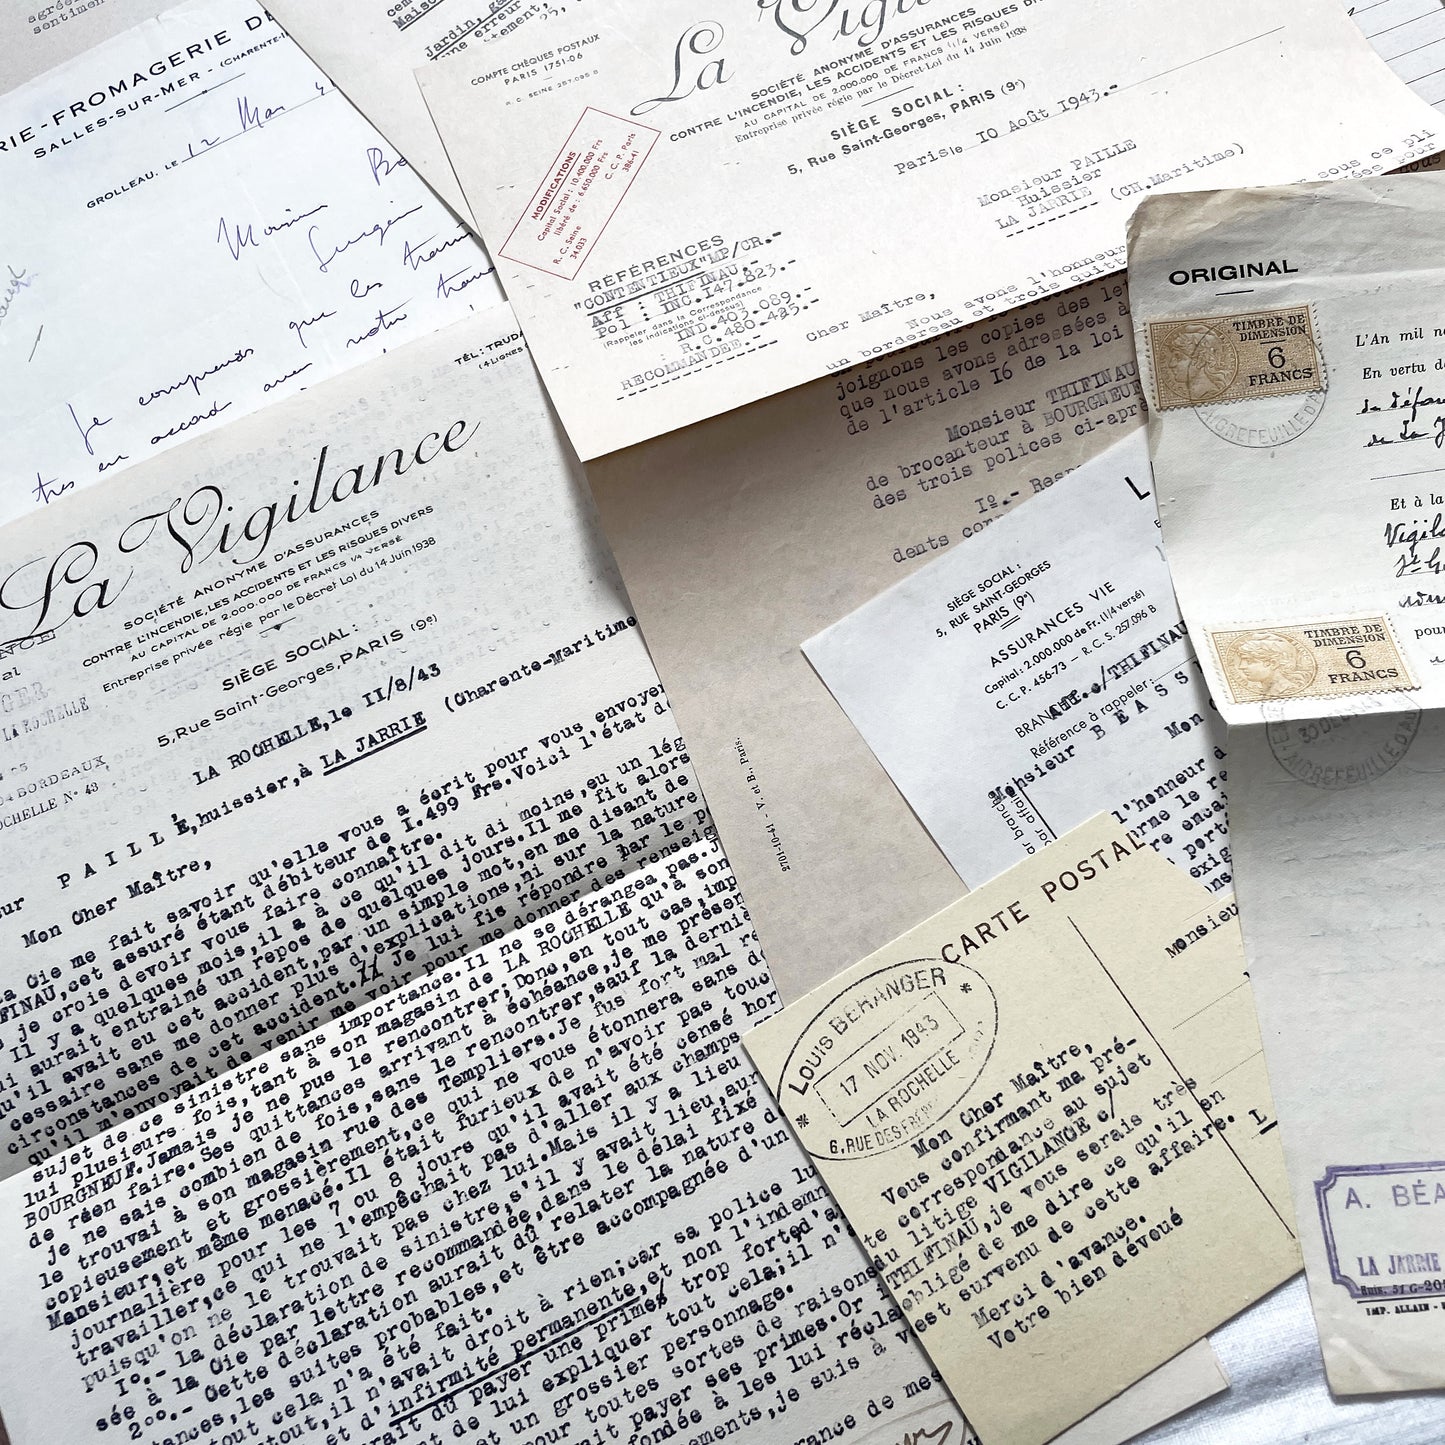 agrée
sentiment
RIE-FROMAGERIE DE
SALLES-SUR-MER - (CHARENTE-I
GROLLEAU, LE 12 Mai 4
Monsieur
Je comprends que les
très en accord avec notre
Maiso
Jardin, ga
une erreur
tement,
COMPTE CHÈQUES POSTAUX
PARIS 1751-06
R. C. SEINE 257.096 B
La Vigila
SOCIÉTÉ ANONYME D'ASSURANCES
CONTRE L'INCENDIE, LES ACCIDENTS ET LES RISQUES DIV
AU CAPITAL DE 2.000.000 DE FRANCS (1/4 VERSÉ)
Entreprise privée régie par le Décret-Loi du 14 Juin 1938
SIÈGE SOCIAL :
5, Rue Saint-Georges, PARIS (9e)
MODIFICATIONS
Capital Social : 10.400.000 Frs
libéré de : 6.650.000 Frs
R. C. Seine C. C. P. Paris
34.033 386-41
Paris le 10 Août 1943.-
Monsieur PAILLE
Huissier
LA JARRIE (CH.Maritime)
RÉFÉRENCES
"CONTENTIEUX"MP/CR.-
Aff : THIFINAU.-
Pol : INC.147.823.-
(Rappeler dans la Correspondance
les indications ci-dessus)
IND.403.089.-
: R.C. 480.425.-
RECOMMANDEE.-
Cher Maître,
Nous avons l'honneur
sous ce pli
un bordereau et trois quitt
pour
joignons les copies des let
que nous avons adressées à
de l'article 16 de la loi
Monsieur THIFINAU
de brocanteur à BOURGNEUF
des trois polices ci-aprè
1º.- Resp
dents corp
2701-10-41 - V. et B., Paris.
TÉL : TRUDA
(4 LIGNES
La Vigilance
SOCIÉTÉ ANONYME D'ASSURANCES
CONTRE L'INCENDIE, LES ACCIDENTS ET LES RISQUES DIVERS
AU CAPITAL DE 2.000.000 DE FRANCS 1/4 VERSÉ
Entreprise privée régie par le Décret Loi du 14 Juin 1938
SIÈGE SOCIAL :
5, Rue Saint-Georges, PARIS (9e)
GER
LA ROCHELLE
BORDEAUX
OCHELLE N° 43
LA ROCHELLE, le 11/8/43
PAILLÉ, huissier, à LA JARRIE (Charente-Maritime
Mon Cher Maître,
La Cie me fait savoir qu'elle vous a écrit pour vous envoyer
FINAU, cet assuré étant débiteur de 1.499 Frs. Voici l'état de
je crois devoir vous faire connaître.
Il y a quelques mois, il a à ce qu'il dit di moins, eu un lég
ui aurait entrainé un repos de quelques jours. Il me fit alors
qu'il avait eu cet accident, par un simple mot, en me disant de
cessaire sans me donner plus d'explications, ni sur la nature
circonstances de cet accident. Je lui fis répondre par le p
qu'il m'envoyait de venir me voir pour me donner des renseign
sujet de ce sinistre sans importance. Il ne se dérangea pas. J
lui plusieurs fois, tant à son magasin de LA ROCHELLE qu'à son
BOURGNEUF. Jamais je ne pus le rencontrer; Donc, en tout cas, imp
de rien faire. Ses quittances arrivant à échéance, je me présen
je ne sais combien de fois, sans le rencontrer, sauf la derniè
le trouvai à son magasin rue des Templiers. Je fus fort mal re
copieusement et grossièrement, ce qui ne vous étonnera sans do
Monsieur, et même menacé. Il était furieux de n'avoir pas touc
journalière pour les 7 ou 8 jours qu'il avait été censé hor
travailler, ce qui ne l'empêchait pas d'aller aux champs
puisqu'on ne le trouvait pas chez lui. Mais il y a lieu
1º.- La déclaration de sinistre, s'il y avait lieu, aur
sée à la Cie par lettre recommandée, dans le délai fixé
2ºº.- Cette déclaration aurait dû relater la nature d
tances, les suites probables, et être accompagnée d'un
tout cela n'a été fait.
tout, il n'avait droit à rien; car sa police lu
d'infirmité permanente, et non l'indemn
rait dû payer une primes trop forte d'a
de lui expliquer tout cela; il n'
et un grossier personnage.
pour toutes sortes de raisons
ait payer ses primes. Or i
fondée à les lui récla
ements, je suis à v
rance de mes
L
SIÈGE SOCIAL :
5, RUE SAINT-GEORGES
PARIS (9e)
ASSURANCES VIE
Capital : 2.000.000 de Fr. (1/4 versé)
C. C. P. 456-73 - R. C. S. 257.096 B
BRANCHE Aff. c/THIFINAU
Référence à rappeler :
Monsieur B E A S S
Mon C
l'honneur d
rme le re
re encai
porti
exig
ORIGINAL
TIMBRE DE
DIMENSION
6
FRANCS
AIGREFEUILLE D'A
L'An mil ne
En vertu d
de défau
de La J
Et à la
Vigila
St G
pour
TIMBRE DE
DIMENSION
6
FRANCS
AIGREFEUILLE D'A
A. BÉA
LA JARRIE
IMP. ALLAIN -
CARTE POSTAL
Monsieu
LOUIS BERANGER
17 NOV. 1943
LA ROCHELLE
6, RUE DES FRÈR
Mon Cher Maître,
Vous confirmant ma pré-
te correspondance au sujet
du litige VIGILANCE c/
THIFINAU, je vous serais très
obligé de me dire ce qu'il en
est survenu de cette affaire. L
Merci d'avance.
Votre bien dévoué